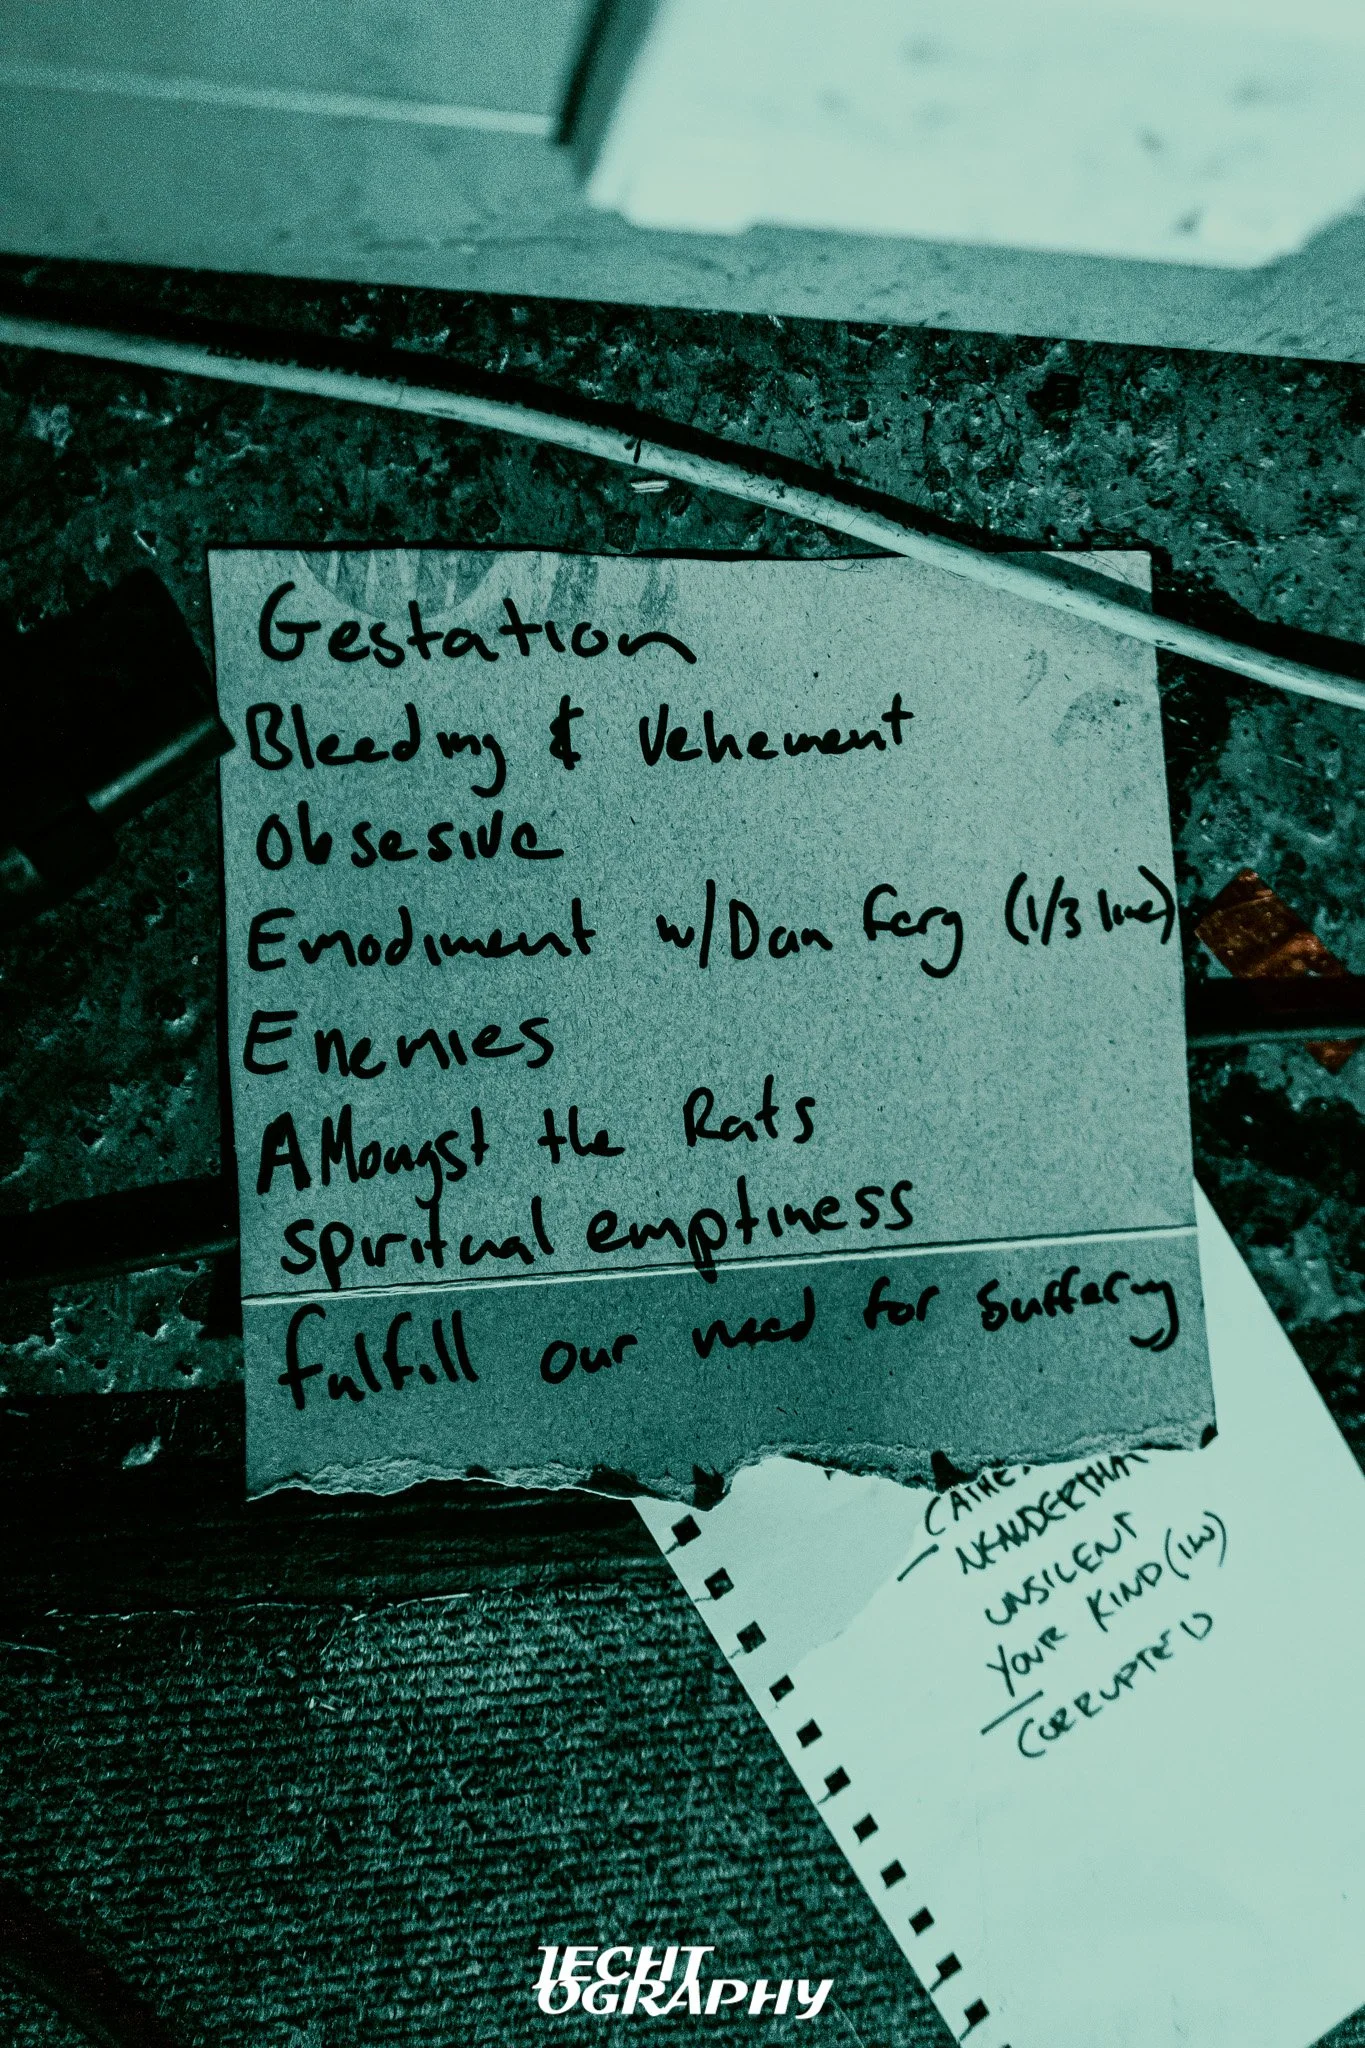 Gestation
Bleeding & Vehement
Obsesive
Emodiment w/Dan Farg (1/3 live)
Enemies
AMongst the Rats
Spiritual emptiness
fulfill our need for suffering
NEANDERTHA
UNSILENT
YOUR KIND
CORRUPTED
IECHT
OGRAPHY